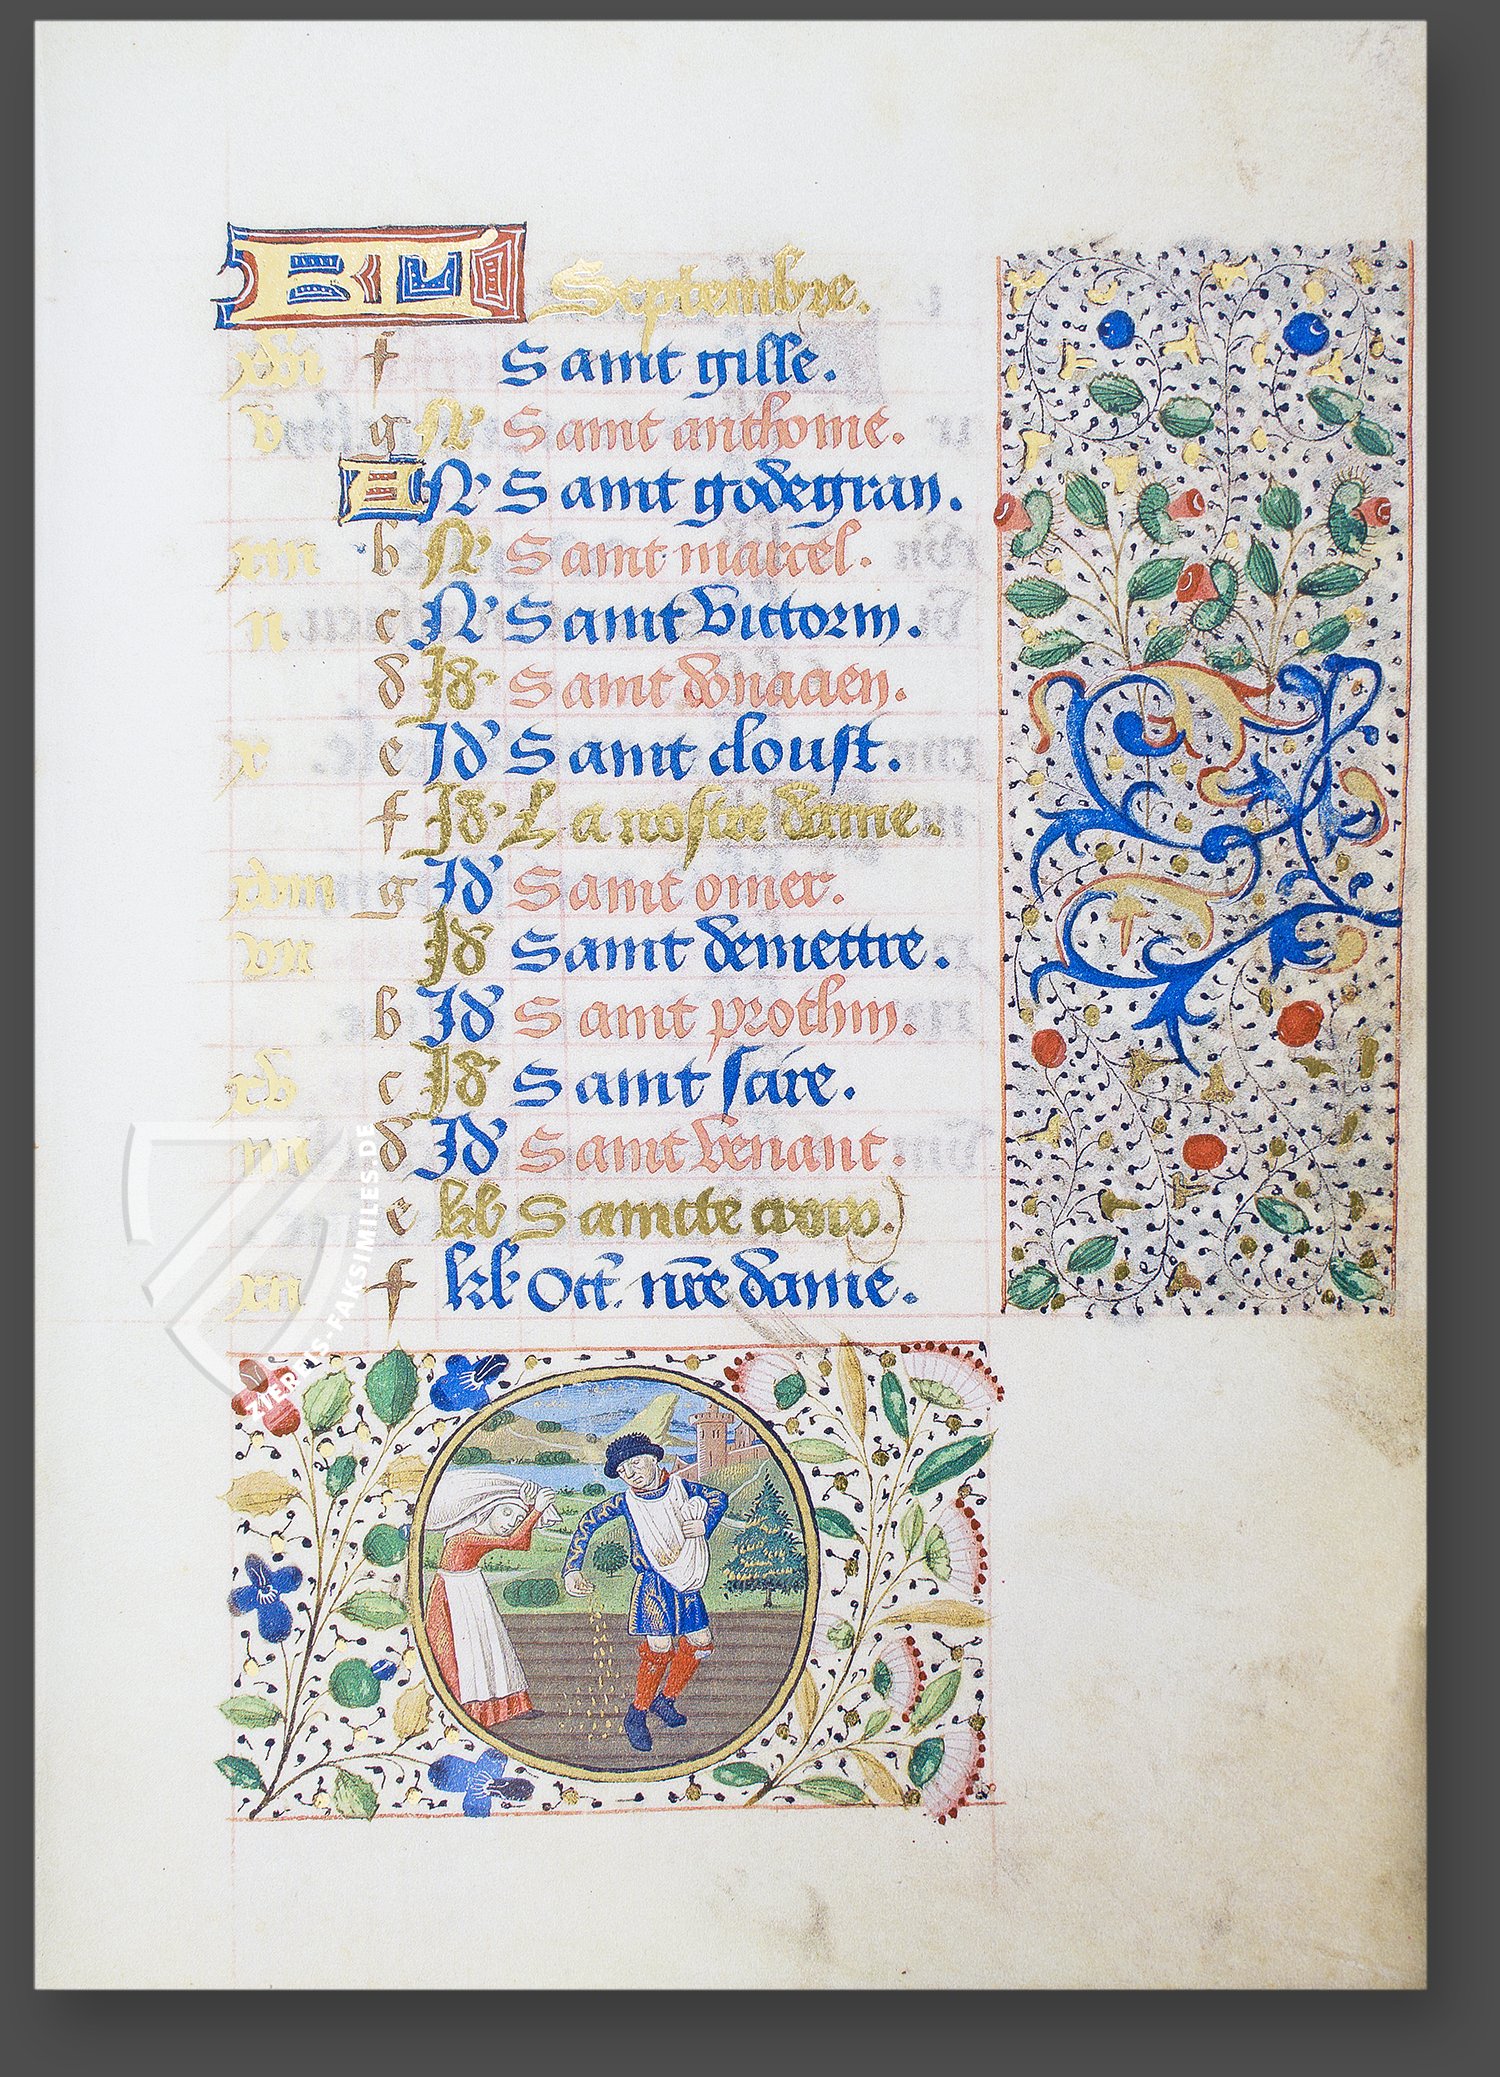 KL Septembre.
xvi f Saint gille.
v g N' Saint anthoine.
A N' Saint godegran.
xiii b N' Saint marcel.
ii c N' Saint victorin.
d Id' Saint donacien.
x e Id' Saint cloust.
f Id' La nostre dame.
xviii g Id' Saint omer.
vii Id' Saint demettre.
b Id' Saint prothin.
xv c Id' Saint saire.
iiii d Id' Saint venant.
e kl Saincte croix.
xii f kl Oct. nre dame.
ZIEREIS-FAKSIMILES.DE